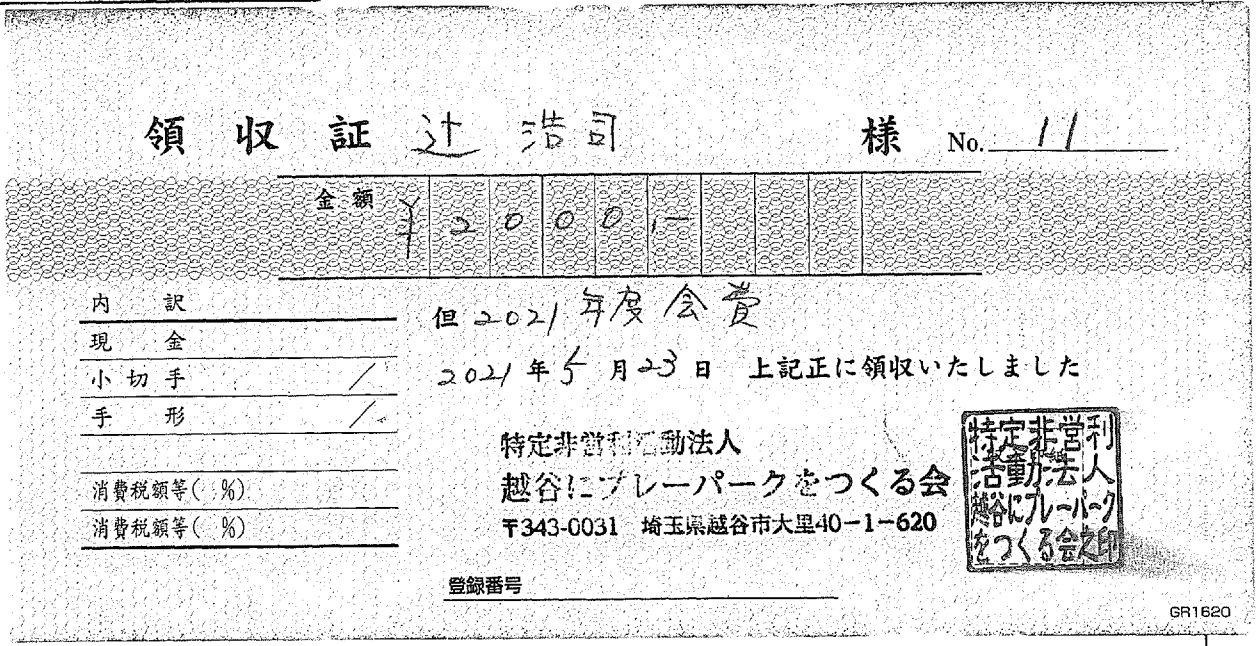 領収証 辻 浩司 様 No. 11
金額 ¥2000,-
内訳
現金
小切手 /
手形 /
消費税額等( %)
消費税額等( %)
但 2021年度会費
2021年5月23日 上記正に領収いたしました
特定非営利活動法人
越谷にプレーパークをつくる会
〒343-0031 埼玉県越谷市大里40-1-620
特定非営利
活動法人
越谷にプレーパーク
をつくる会之印
登録番号
GR1620